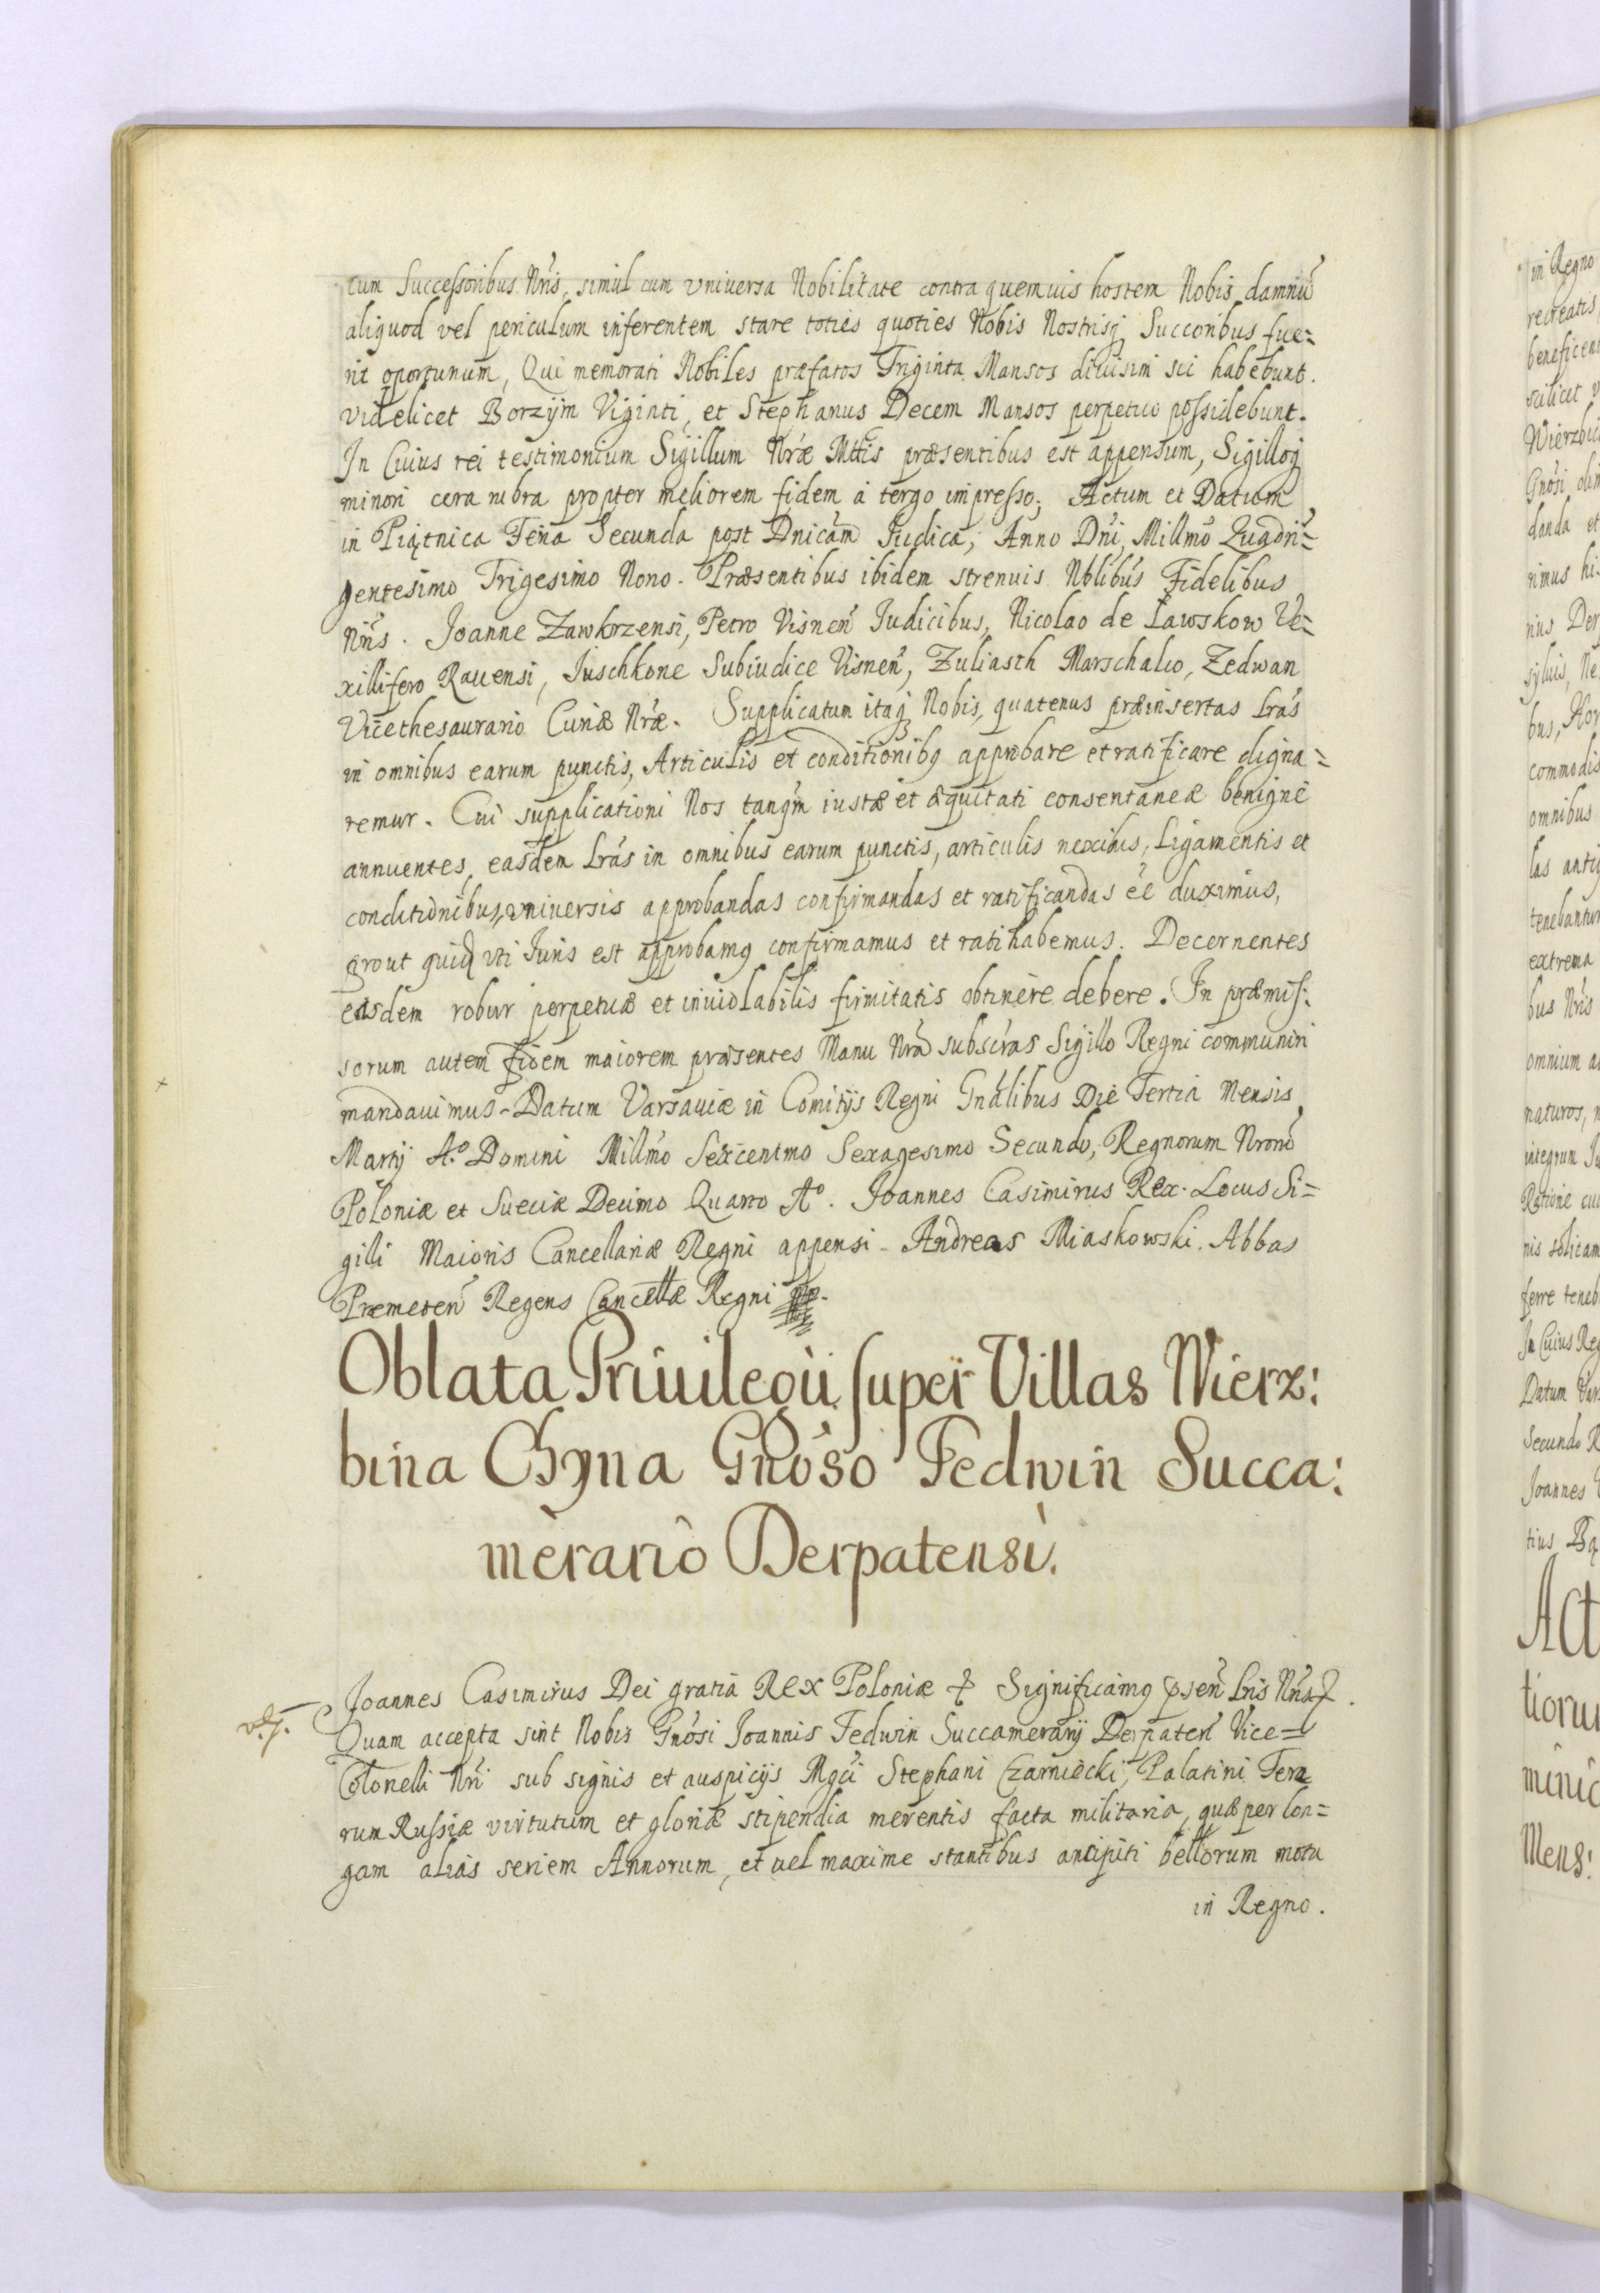 cum Successoribus Nris, simul cum vniuersa Nobilitate contra quemuis hostem Nobis damnũ
aliquod vel periculum inferentem stare toties quoties Nobis Nostrisq Succoribus fue=
rit oportunum, Qui memorati Nobiles præfatos Triginta Mansos diuisim sic habebunt.
videlicet Borzÿm Viginti, et Stephanus Decem Mansos perpetuo possidebunt.
In Cuius rei testimonium Sigillum Nræ Mttis præsentibus est appensum, Sigilloq
minori cera rubra propter meliorem fidem à tergo impresso; Actum et Datum
in Piątnica Feria Secunda post Dnicam Iudica, Anno Dni Millmo Quadri=
gentesimo Trigesimo Nono. Præsentibus ibidem strenuis Nblibus Fidelibus
Nris. Joanne Zawkrzensi, Petro Visneñ Iudicibus, Nicolao de Lawskow Ve=
xillifero Rauensi, Juschkone Subiudice Visneñ, Zuliasch Marschalco, Zedwan
Vicethesaurario Curiæ Nræ. Supplicatum itaq Nobis, quatenus præinsertas Lras
in omnibus earum punctis, Articulis et conditionibq approbare et ratificare digna=
remur. Cui supplicationi Nos tanqm iustæ et æquitati consentaneæ benigne
annuentes, easdem Lras in omnibus earum punctis, articulis nexibus, Ligamentis et
conditionibus, vniuersis approbandas confirmandas et ratificandas ee duximus,
prout quidq vti Iuris est approbamq confirmamus et ratihabemus. Decernentes
easdem robur perpetuæ et inuiolabilis firmitatis obtinere debere. In præmis:
sorum autem fidem maiorem præsentes Manu Nra subscras Sigillo Regni communiri
mandauimus. Datum Varsauiæ in Comitijs Regni Gnalibus Die Tertia Mensis
Martij Aº Domini Millmo Sexcentmo Sexagesimo Secundo, Regnorum Nrorũ
Poloniæ et Sueciæ Decimo Quarto Aº. Joannes Casimirus Rex. Locus Si=
gilli Maioris Cancellariæ Regni appensi. Andreas Miaskowski. Abbas
Præmeteñ Regens Cancellæ Regni
Oblata Priuilegij super Villas Wierz:
bina Chyna Gnoso Fedwin Succa:
merario Derpatensi.
Joannes Casimirus Dei gratia Rex Poloniæ & Significamq pseñ Lris Nris &.
Quam accepta sint Nobis Gnosi Joannis Fedwin Succamerarij Derpateñ Vice=
Colonelli Nri sub signis et auspicijs Mgci Stephani Czarniecki, Palatini Terra
rum Russiæ virtutum et gloriæ stipendia merentis facta militaria, quæ per lon=
gam alias seriem Annorum, et vel maxime stantibus ancipiti bellorum motu
in Regno.